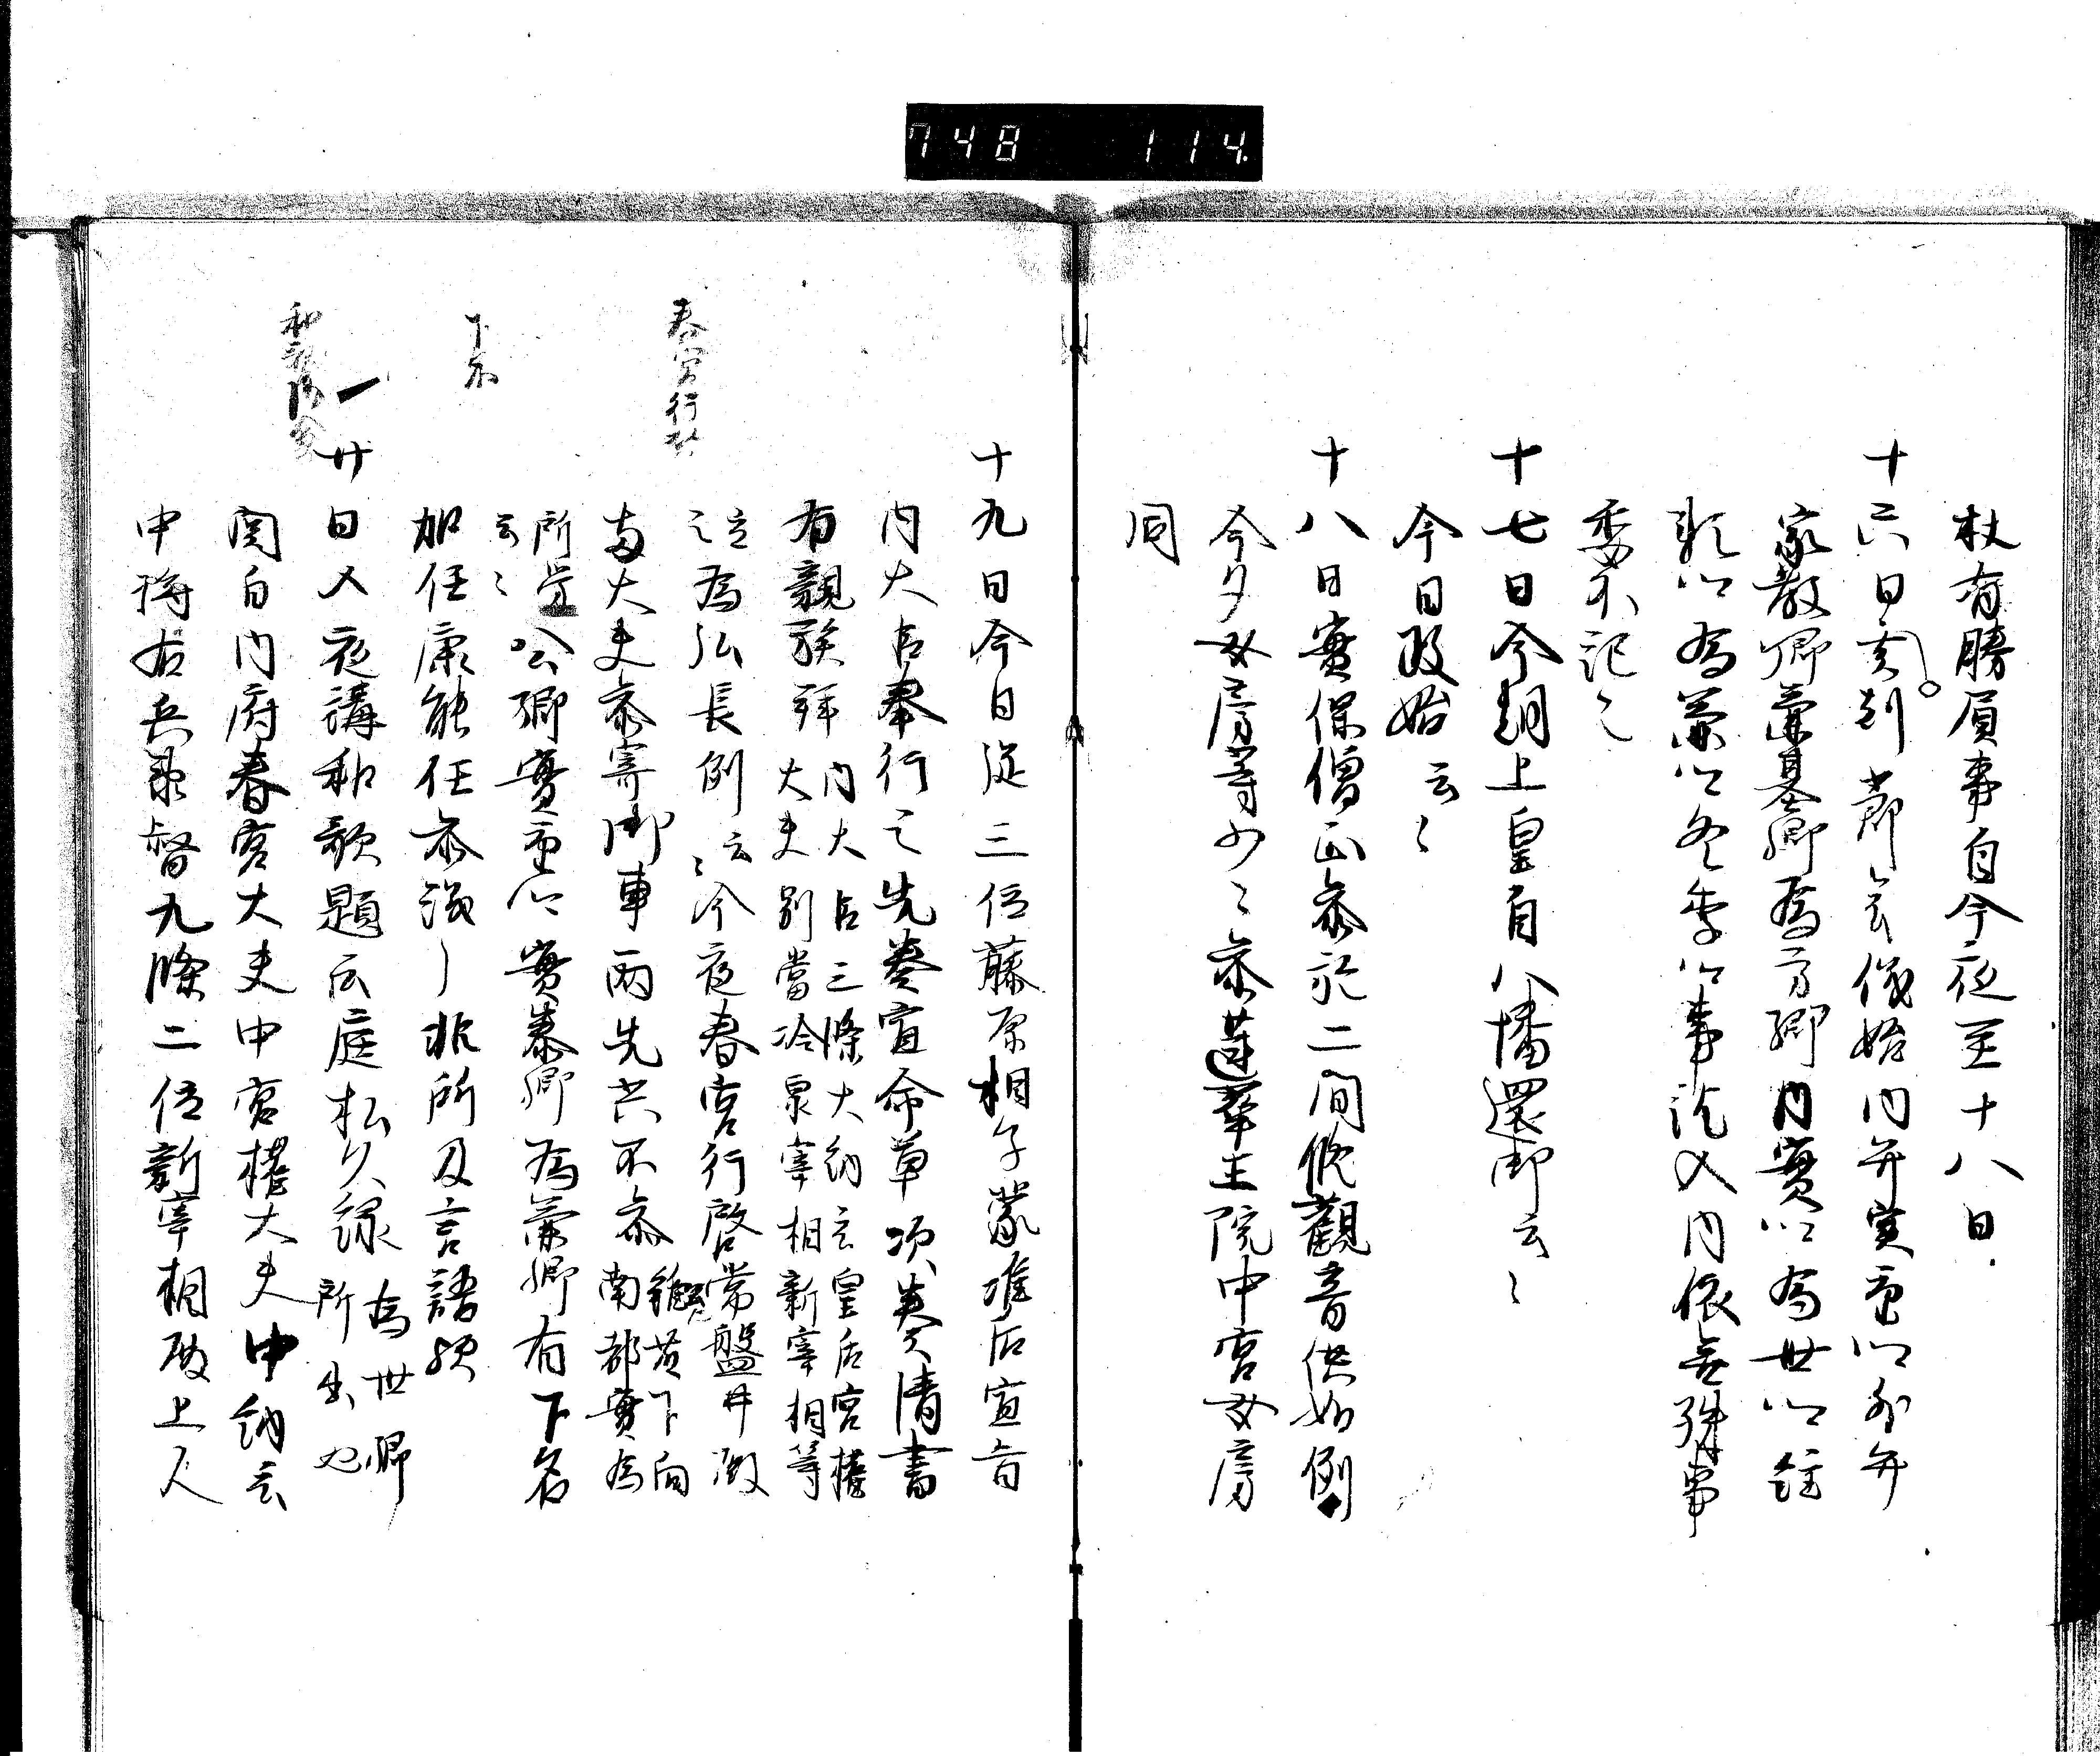 748 114
杖有勝負事自今夜至十八日
十六日亥刻節会儀始内弁実重公外弁
家教卿兼基卿為方卿内實公為世公経
親公為兼公冬季公事訖入内依無殊事
委不記之
十七日今朝上皇自八幡還御云々
今日政始云々
十八日實保僧正参於二間修觀音供如例
今夕女房等少々参蓮華王院中宮女房
同
十九日今日従三位藤原相子蒙准后宣旨
内大臣奉行之先奏宣命草次奏清書
有親族拝内大臣三條大納言皇后宮権
大夫別當冷泉宰相新宰相等
立之為弘長例云々今夜春宮行啓常盤井殿
大夫参寄御車両先共不参
下向
南都實為
所労云々公卿實重公實泰卿為兼卿有下名
加任康能任参議非所及言語歟
廿日入夜講和歌題云庭松久緑為世卿
所出也
関白内府春宮大夫中宮権大夫中納言
中将右兵衛督九條二位新宰相殿上人
春宮行啓
下名
和歌御会